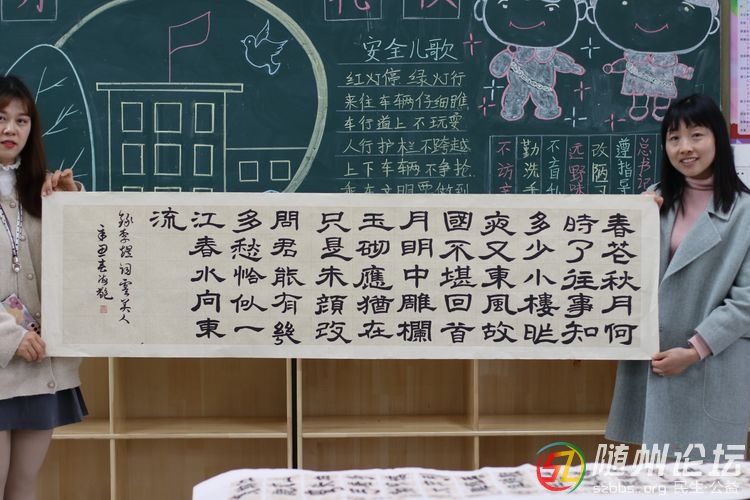 安全儿歌
红灯停 绿灯行
来往车辆仔细瞧
车行道上 不玩耍
人行护栏 不跨越
上下车辆 不争抢
乘车文明要做到
总书记
遵指导
改陋
远野味
不盲
勤洗手
不访
春花秋月何
時了往事知
多少小樓昨
夜又東風故
國不堪回首
月明中雕欄
玉砌應猶在
只是朱顔改
問君能有幾
多愁恰似一
江春水向東
流
錄李煜詞虞美人
辛丑春海
随州论坛
szbbs.org 民生公益